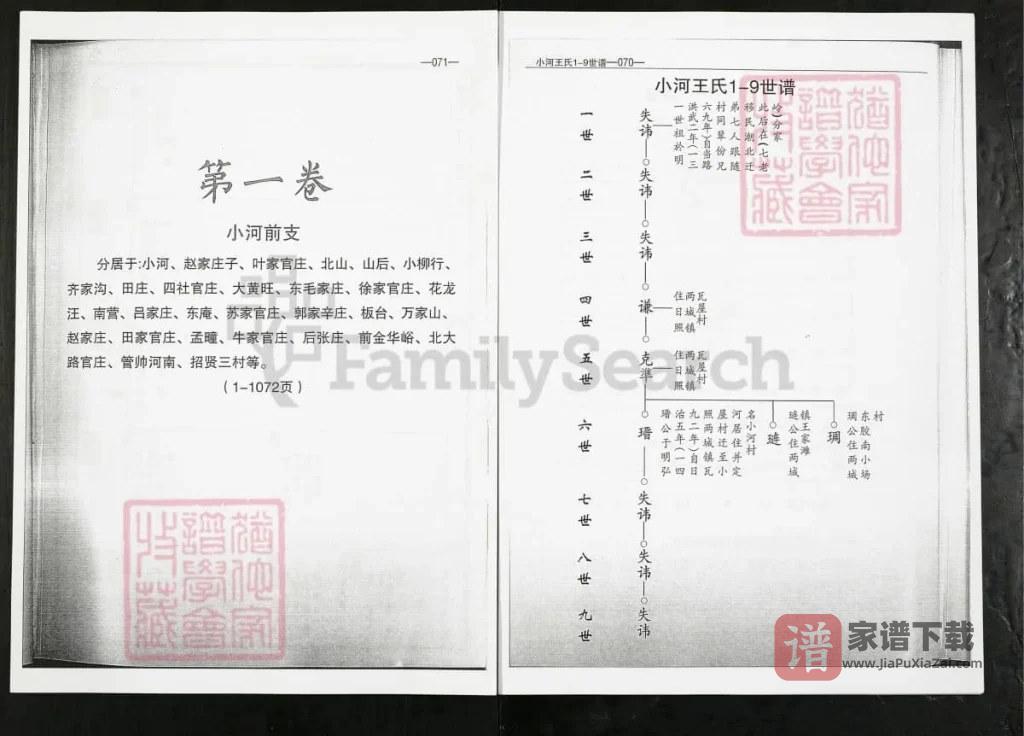 —071—
第一卷
小河前支
分居于:小河、赵家庄子、叶家官庄、北山、山后、小柳行、
齐家沟、田庄、四社官庄、大黄旺、东毛家庄、徐家官庄、花龙
汪、南营、吕家庄、东庵、苏家官庄、郭家辛庄、板台、万家山、
赵家庄、田家官庄、孟疃、牛家官庄、后张庄、前金华峪、北大
路官庄、管帅河南、招贤三村等。
(1-1072页)
猶他家
譜學會
收藏
小河王氏1-9世谱—070—
小河王氏1-9世谱
一世
失讳
一世祖於明
洪武二年(一三
六九年)自当路
村同辈份兄
弟七人跟随
移民潮北迁
此后在(七老
峪)分家
二世
失讳
三世
失讳
四世
谦
住日照
两城镇
瓦屋村
五世
克準
住日照
两城镇
瓦屋村
六世
瑨
瑨公于明弘
治五年(一四
九二年)自日
照两城镇瓦
屋村迁至小
河居住并定
名小河村
琏
琏公住两城
镇王家滩
琱
琱公住两城
东胶南小场
村
七世
失讳
八世
失讳
九世
失讳
猶他家
譜學會
收藏
FamilySearch
谱
家谱下载
www.JiaPuXiaZai.com